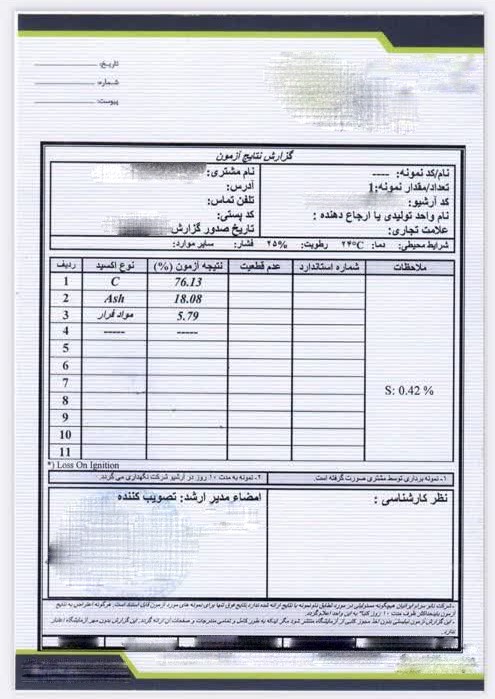 تاریخ:
شماره:
پیوست:
گزارش نتایج آزمون
نام/کد نمونه: ----
نام مشتری:
تعداد/مقدار نمونه:1
آدرس:
کد آرشیو:
تلفن تماس:
نام واحد تولیدی یا ارجاع دهنده :
کد پستی:
علامت تجاری:
تاریخ صدور گزارش
شرایط محیطی: دما: ۲۴°C رطوبت: ۲۵% فشار: سایر موارد:
ردیف نوع اکسید نتیجه آزمون (%) عدم قطعیت شماره استاندارد ملاحظات
1 C 76.13
2 Ash 18.08
3 مواد فرار 5.79
4 ----- -----
5
6
7
8
9
10
11
S: 0.42 %
*) Loss On Ignition
۱- نمونه برداری توسط مشتری صورت گرفته است.
۲- نمونه به مدت ۱۰ روز در آرشیو شرکت نگهداری می گردد.
نظر کارشناسی :
امضاء مدیر ارشد: تصویب کننده